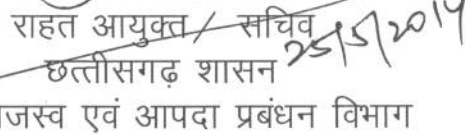 राहत आयुक्त / सचिव
25/5/2014
छत्तीसगढ़ शासन
जस्व एवं आपदा प्रबंधन विभाग